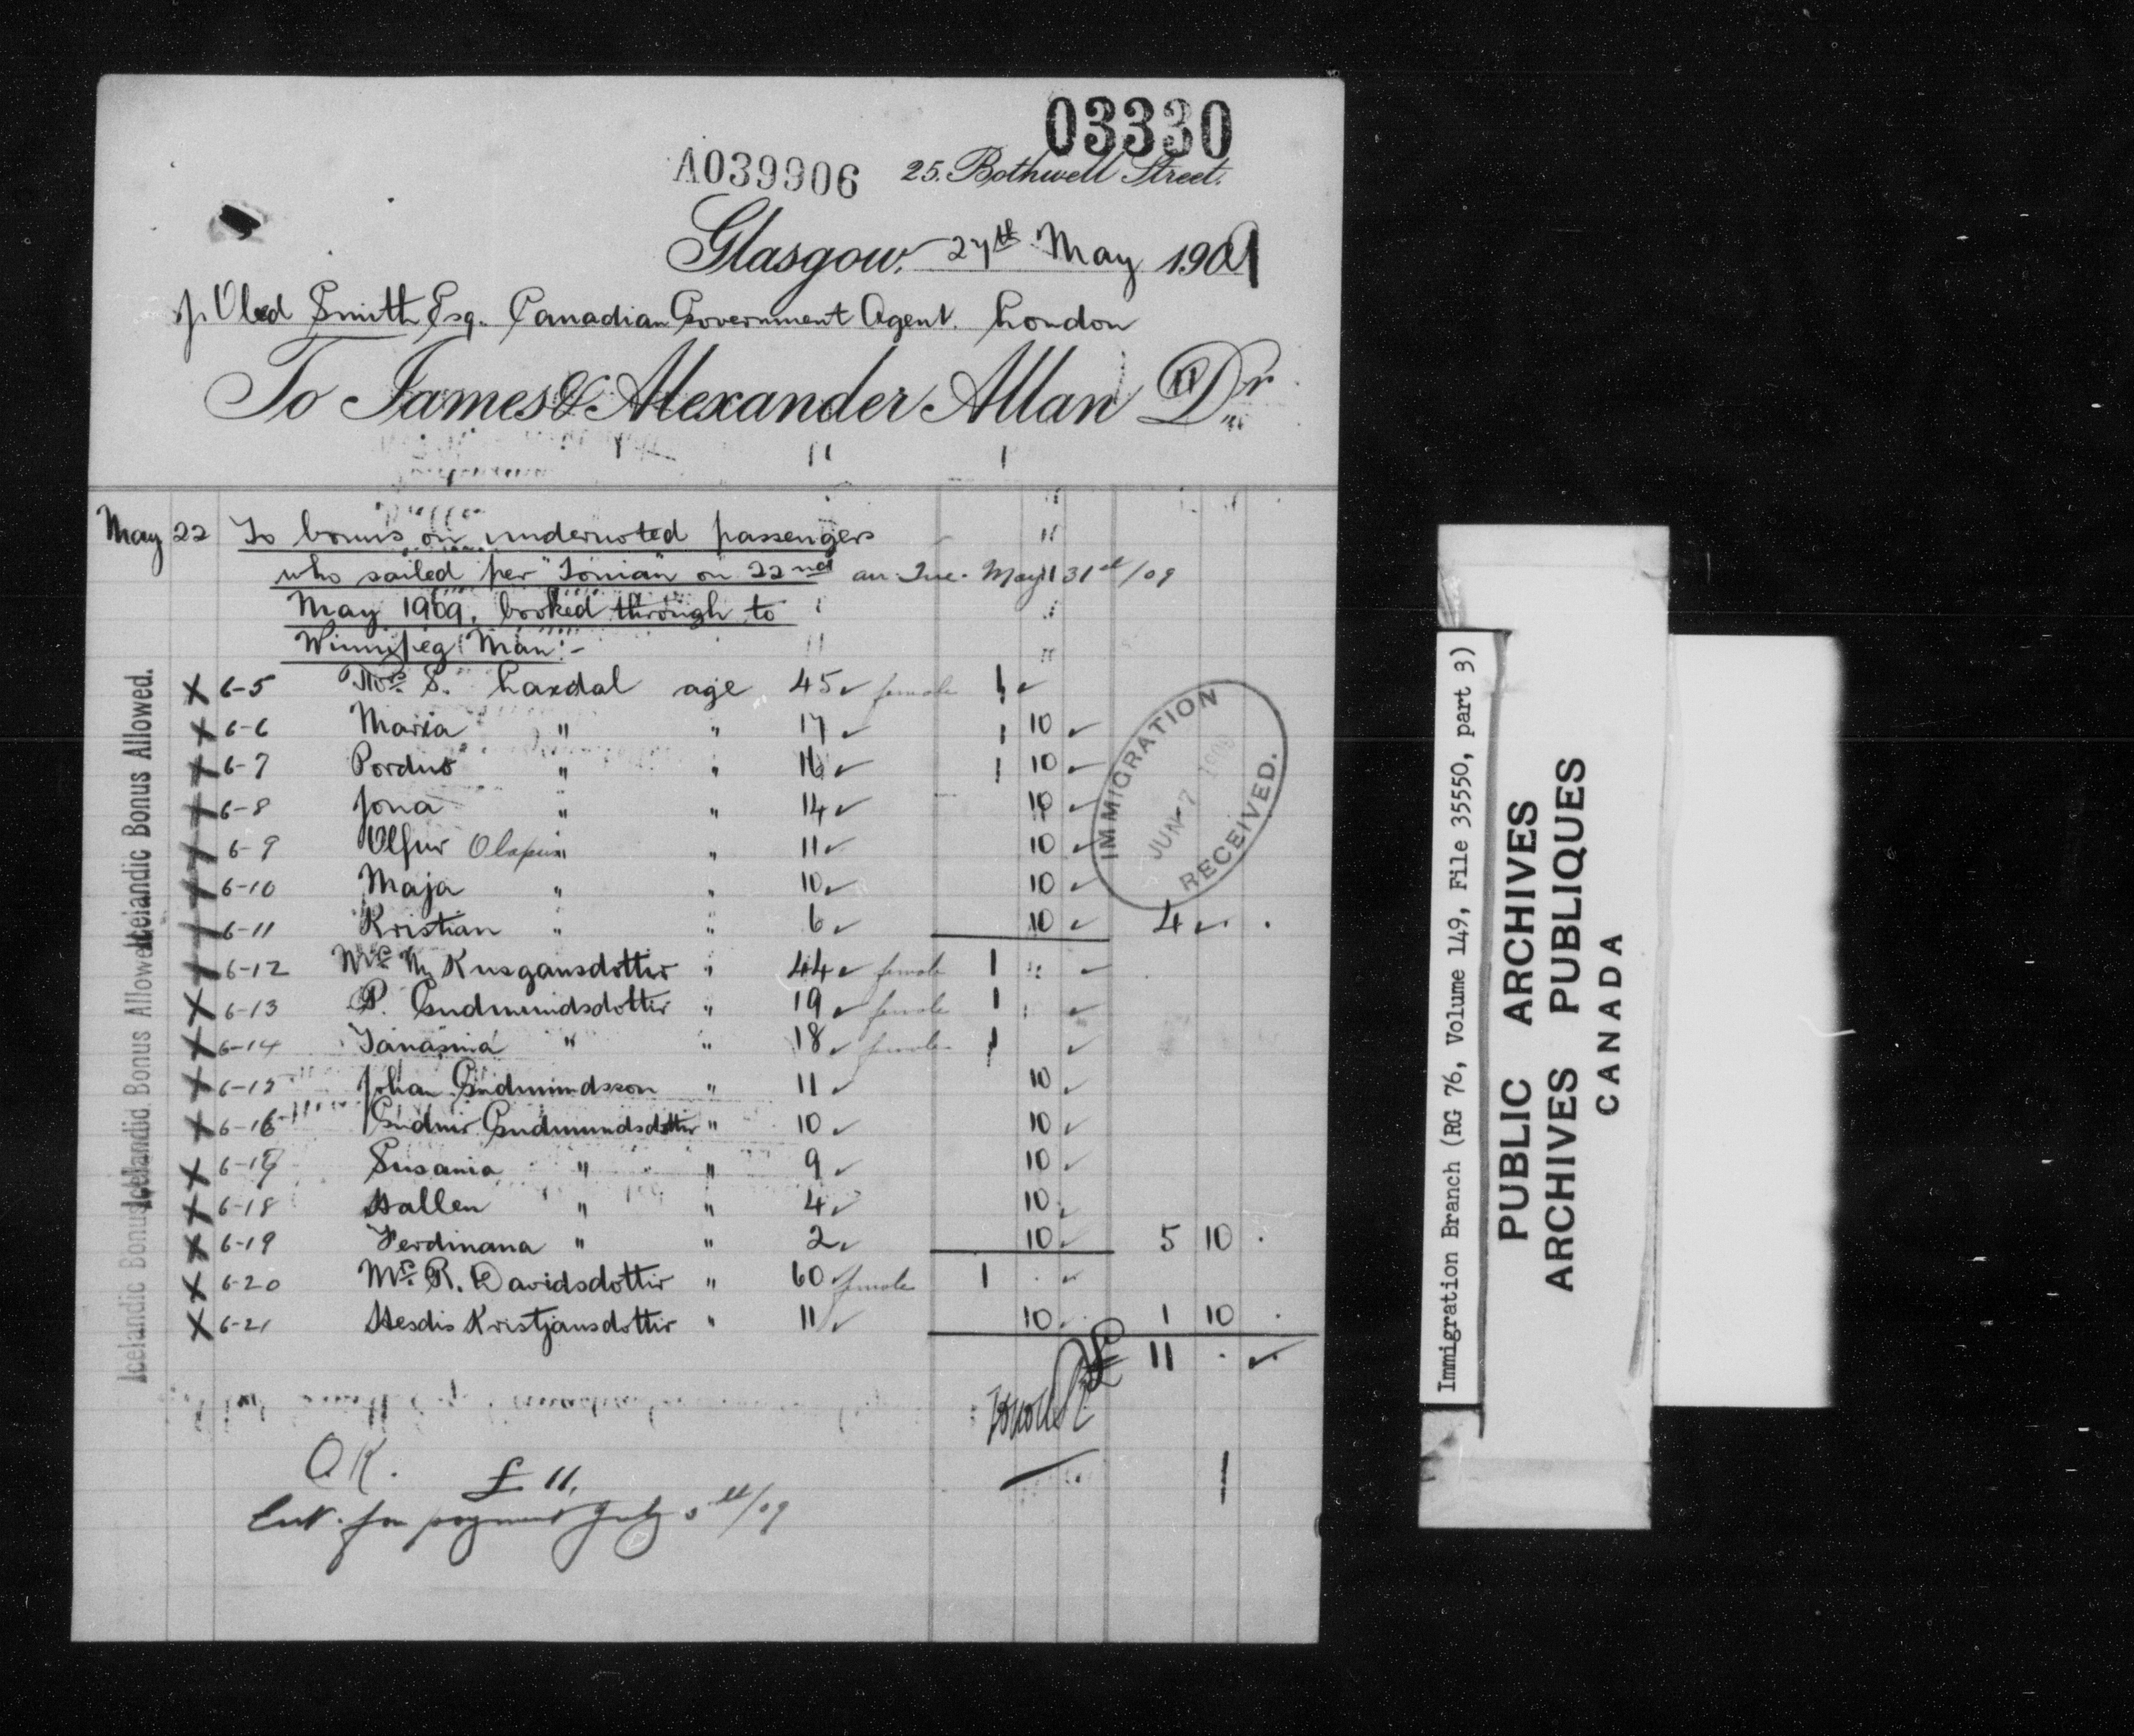 03330
A039906 25. Bothwell Street.
Glasgow, 27th May 1909
J. Obed Smith Esq. Canadian Government Agent. London
To James & Alexander Allan Dr
May 22 To bonus on undernoted passengers
who sailed per "Ionian" on 22nd arr. Que. May 31st/09
May 1909, booked through to
Winnipeg Man:-
X 6-5 Mrs S. Laxdal age 45 ✓ female 1 ✓
X 6-6 Maria " " 17 ✓ 1 10 ✓
X 6-7 Pordus " " 16 ✓ 1 10 ✓
X 6-8 Jona " " 14 ✓ 10 ✓
X 6-9 Olfur " " 11 ✓ 10 ✓
X 6-10 Maja " " 10 ✓ 10 ✓
X 6-11 Kristian " " 6 ✓ 10 ✓ 4 ✓ .
X 6-12 Mrs M Kusgansdottir " 44 ✓ female 1 " ✓
X 6-13 P. Gudmundsdottir " 19 ✓ female 1 ✓
X 6-14 " " 18 ✓ female 1 ✓
X 6-15 Johan Gudmundsson " 11 ✓ 10 ✓
X 6-16 Gudnir Gudmundsdottir " 10 ✓ 10 ✓
X 6-17 Susania " " 9 ✓ 10 ✓
X 6-18 Hallen " " 4 ✓ 10 ✓
X 6-19 Ferdinana " " 2 ✓ 10 ✓ 5 10 .
X 6-20 Mrs R. Davidsdottir " 60 ✓ female 1 . ✓
X 6-21 Hesdis Kristjansdottir " 11 ✓ 10 ✓ 1 10 .
£ 11 . ✓
O.K. £ 11.
Ent. for payment July 5th/09
Icelandic Bonus Allowed.
Icelandic Bonus Allowed
Icelandic Bonus
IMMIGRATION
JUN 7 1909
RECEIVED.
Immigration Branch (RG 76, Volume 149, File 35550, part 3)
PUBLIC ARCHIVES
ARCHIVES PUBLIQUES
CANADA